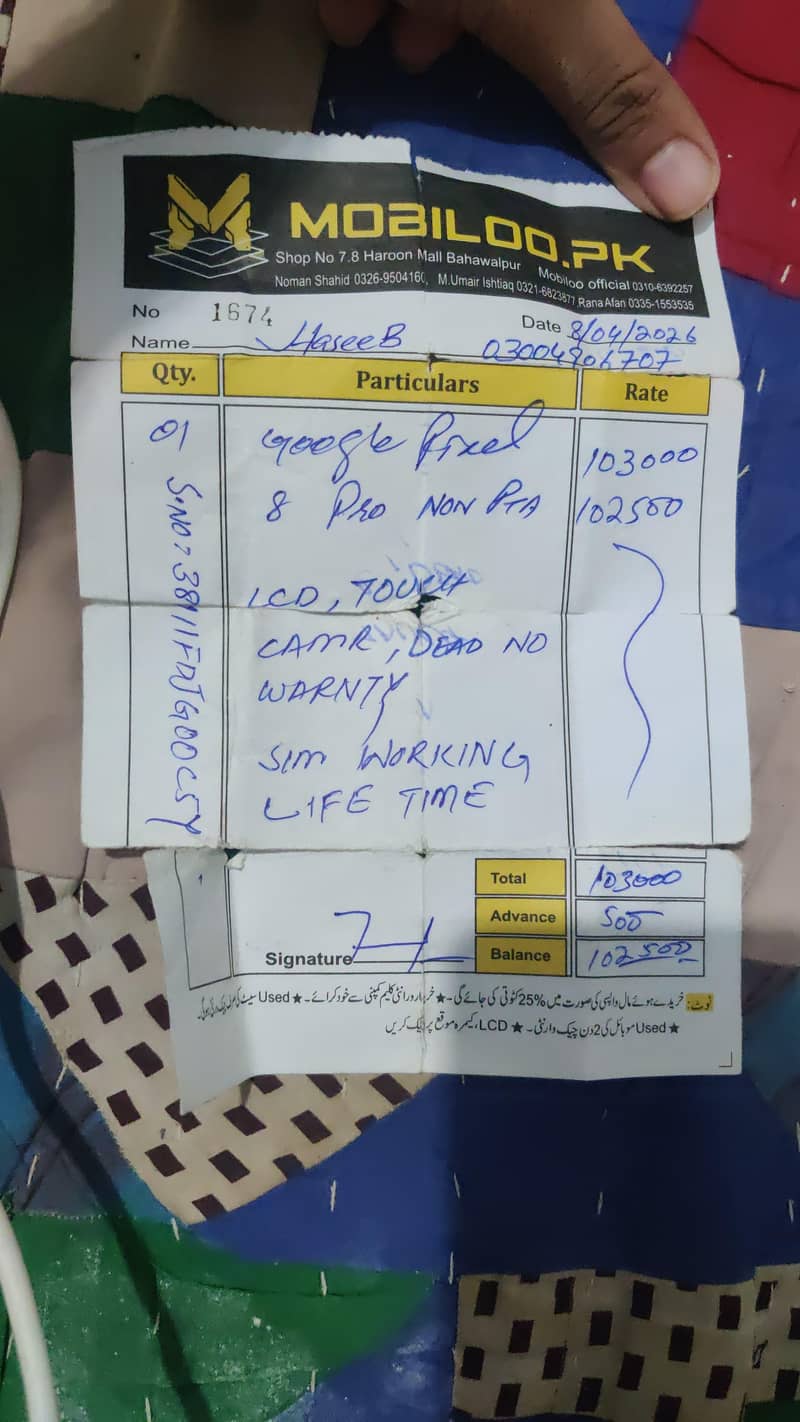 MOBILOO.PK
Shop No 7.8 Haroon Mall Bahawalpur Mobiloo official 0310-6392257
Noman Shahid 0326-9504160, M.Umair Ishtiaq 0321-6823877, Rana Afan 0335-1553535
No 1674 Date 8/04/2026
Name HaseeB 03004906707
Qty. Particulars Rate
01 Google Pixel 103000
8 Pro NON PTA 102500
LCD, TOUCH
CAMR, DEAD NO
WARNTY
SIM WORKING
LIFE TIME
Total 103000
Advance 500
Signature Balance 102500
نوٹ: خریدے ہوئے مال واپسی کی صورت میں 25% کٹوتی کی جائے گی۔ ★ خریدار وارنٹی کلیم کمپنی سے خود کرائے۔ ★ Used
★ Used موبائل کی 2 دن چیک وارنٹی۔ ★ LCD، کیمرہ موقع پر چیک کریں